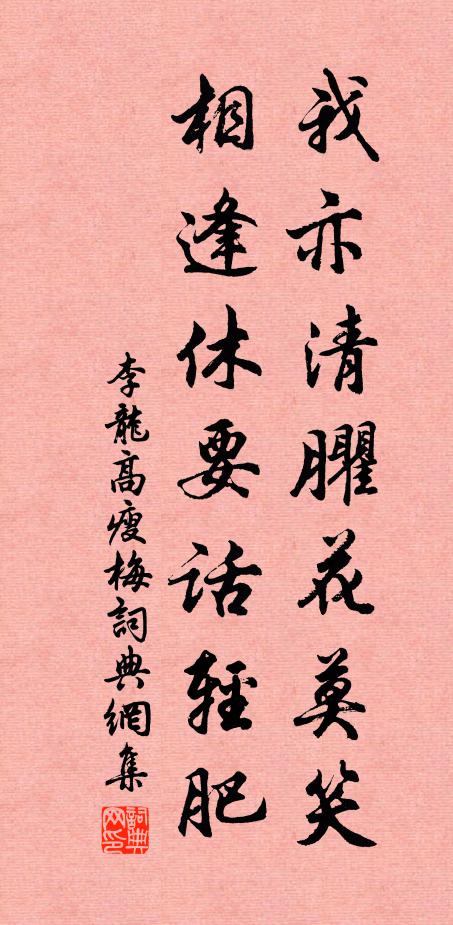 我亦清臞花莫笑
相逢休要话輕肥
李龍高瘦梅詞典網集
詞典网印